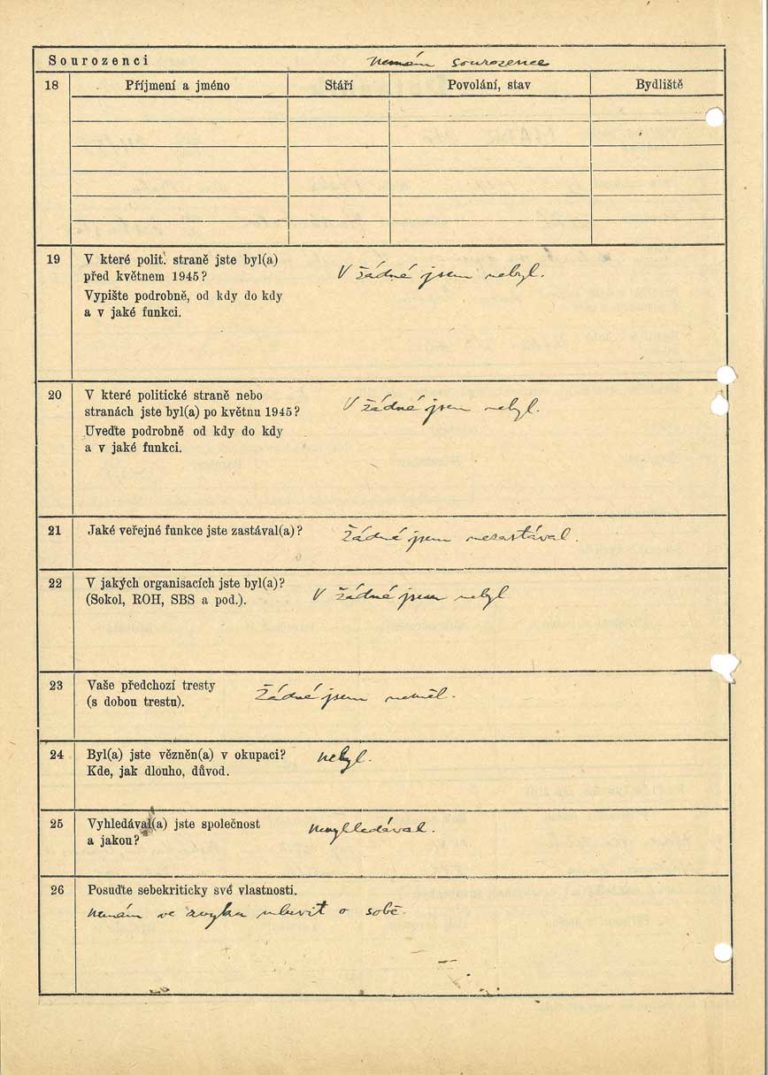 Sourozenci nemám sourozence
18 Příjmení a jméno Stáří Povolání, stav Bydliště
19 V které polit. straně jste byl(a) před květnem 1945?
Vypište podrobně, od kdy do kdy a v jaké funkci.
V žádné jsem nebyl.
20 V které politické straně nebo stranách jste byl(a) po květnu 1945?
Uveďte podrobně od kdy do kdy a v jaké funkci.
V žádné jsem nebyl.
21 Jaké veřejné funkce jste zastával(a)? Žádné jsem nezastával.
22 V jakých organisacích jste byl(a)?
(Sokol, ROH, SBS a pod.). V žádné jsem nebyl
23 Vaše předchozí tresty
(s dobou trestu). Žádné jsem neměl.
24 Byl(a) jste vězněn(a) v okupaci? nebyl.
Kde, jak dlouho, důvod.
25 Vyhledával(a) jste společnost nevyhledával.
a jakou?
26 Posuďte sebekriticky své vlastnosti.
nemám ve zvyku mluvit o sobě.